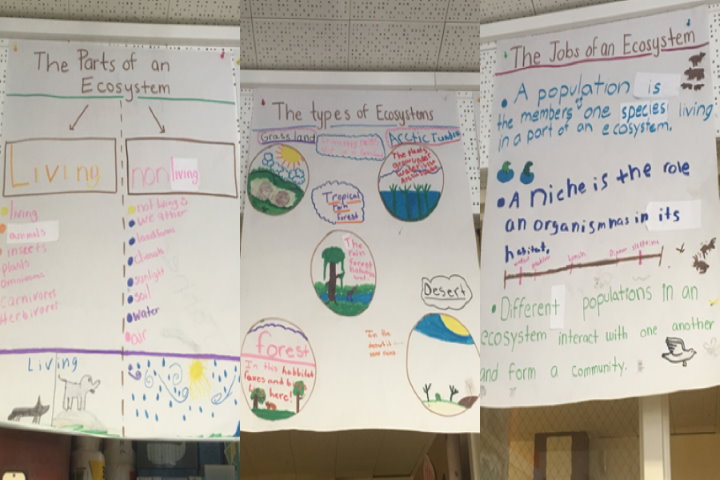 The Parts of an
Ecosystem
Living
nonliving
living
animals
insects
Plants
omnivores
carnivores
Herbivores
not living
weather
landforms
climate
sunlight
soil
water
air
Living
The types of Ecosystems
Grassland
Arctic Tundra
Tropical
rain
forest
The
rain
forest
Desert
forest
In this habbitat
foxes and
live here!
In the
The Jobs of an Ecosystem
• A population is
the members of one species living
in a part of an ecosystem.
• A niche is the role
an organism has in its
habitat.
• Different populations in an
ecosystem interact with one another
and form a community.